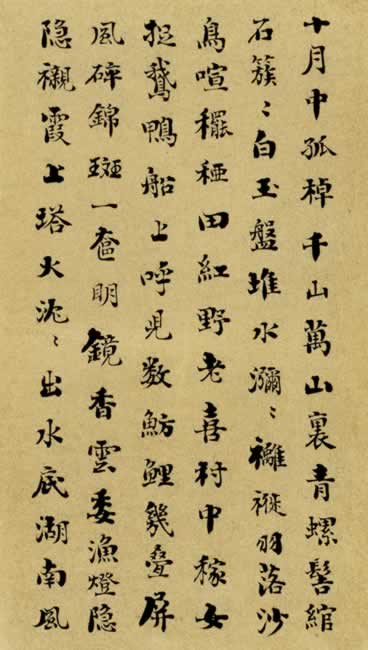 十月中孤棹千山萬山裏青螺髻綰
石簇〻白玉盤堆水瀰〻褵褷羽落沙
鳥喧䆉稏田紅野老喜村中稼女
捉鵞鴨船上呼兒数魴鯉幾疊屏
風碎錦斑一奩明鏡香雲委漁燈隐
隐襯霞上塔火沈〻出水底湖南風